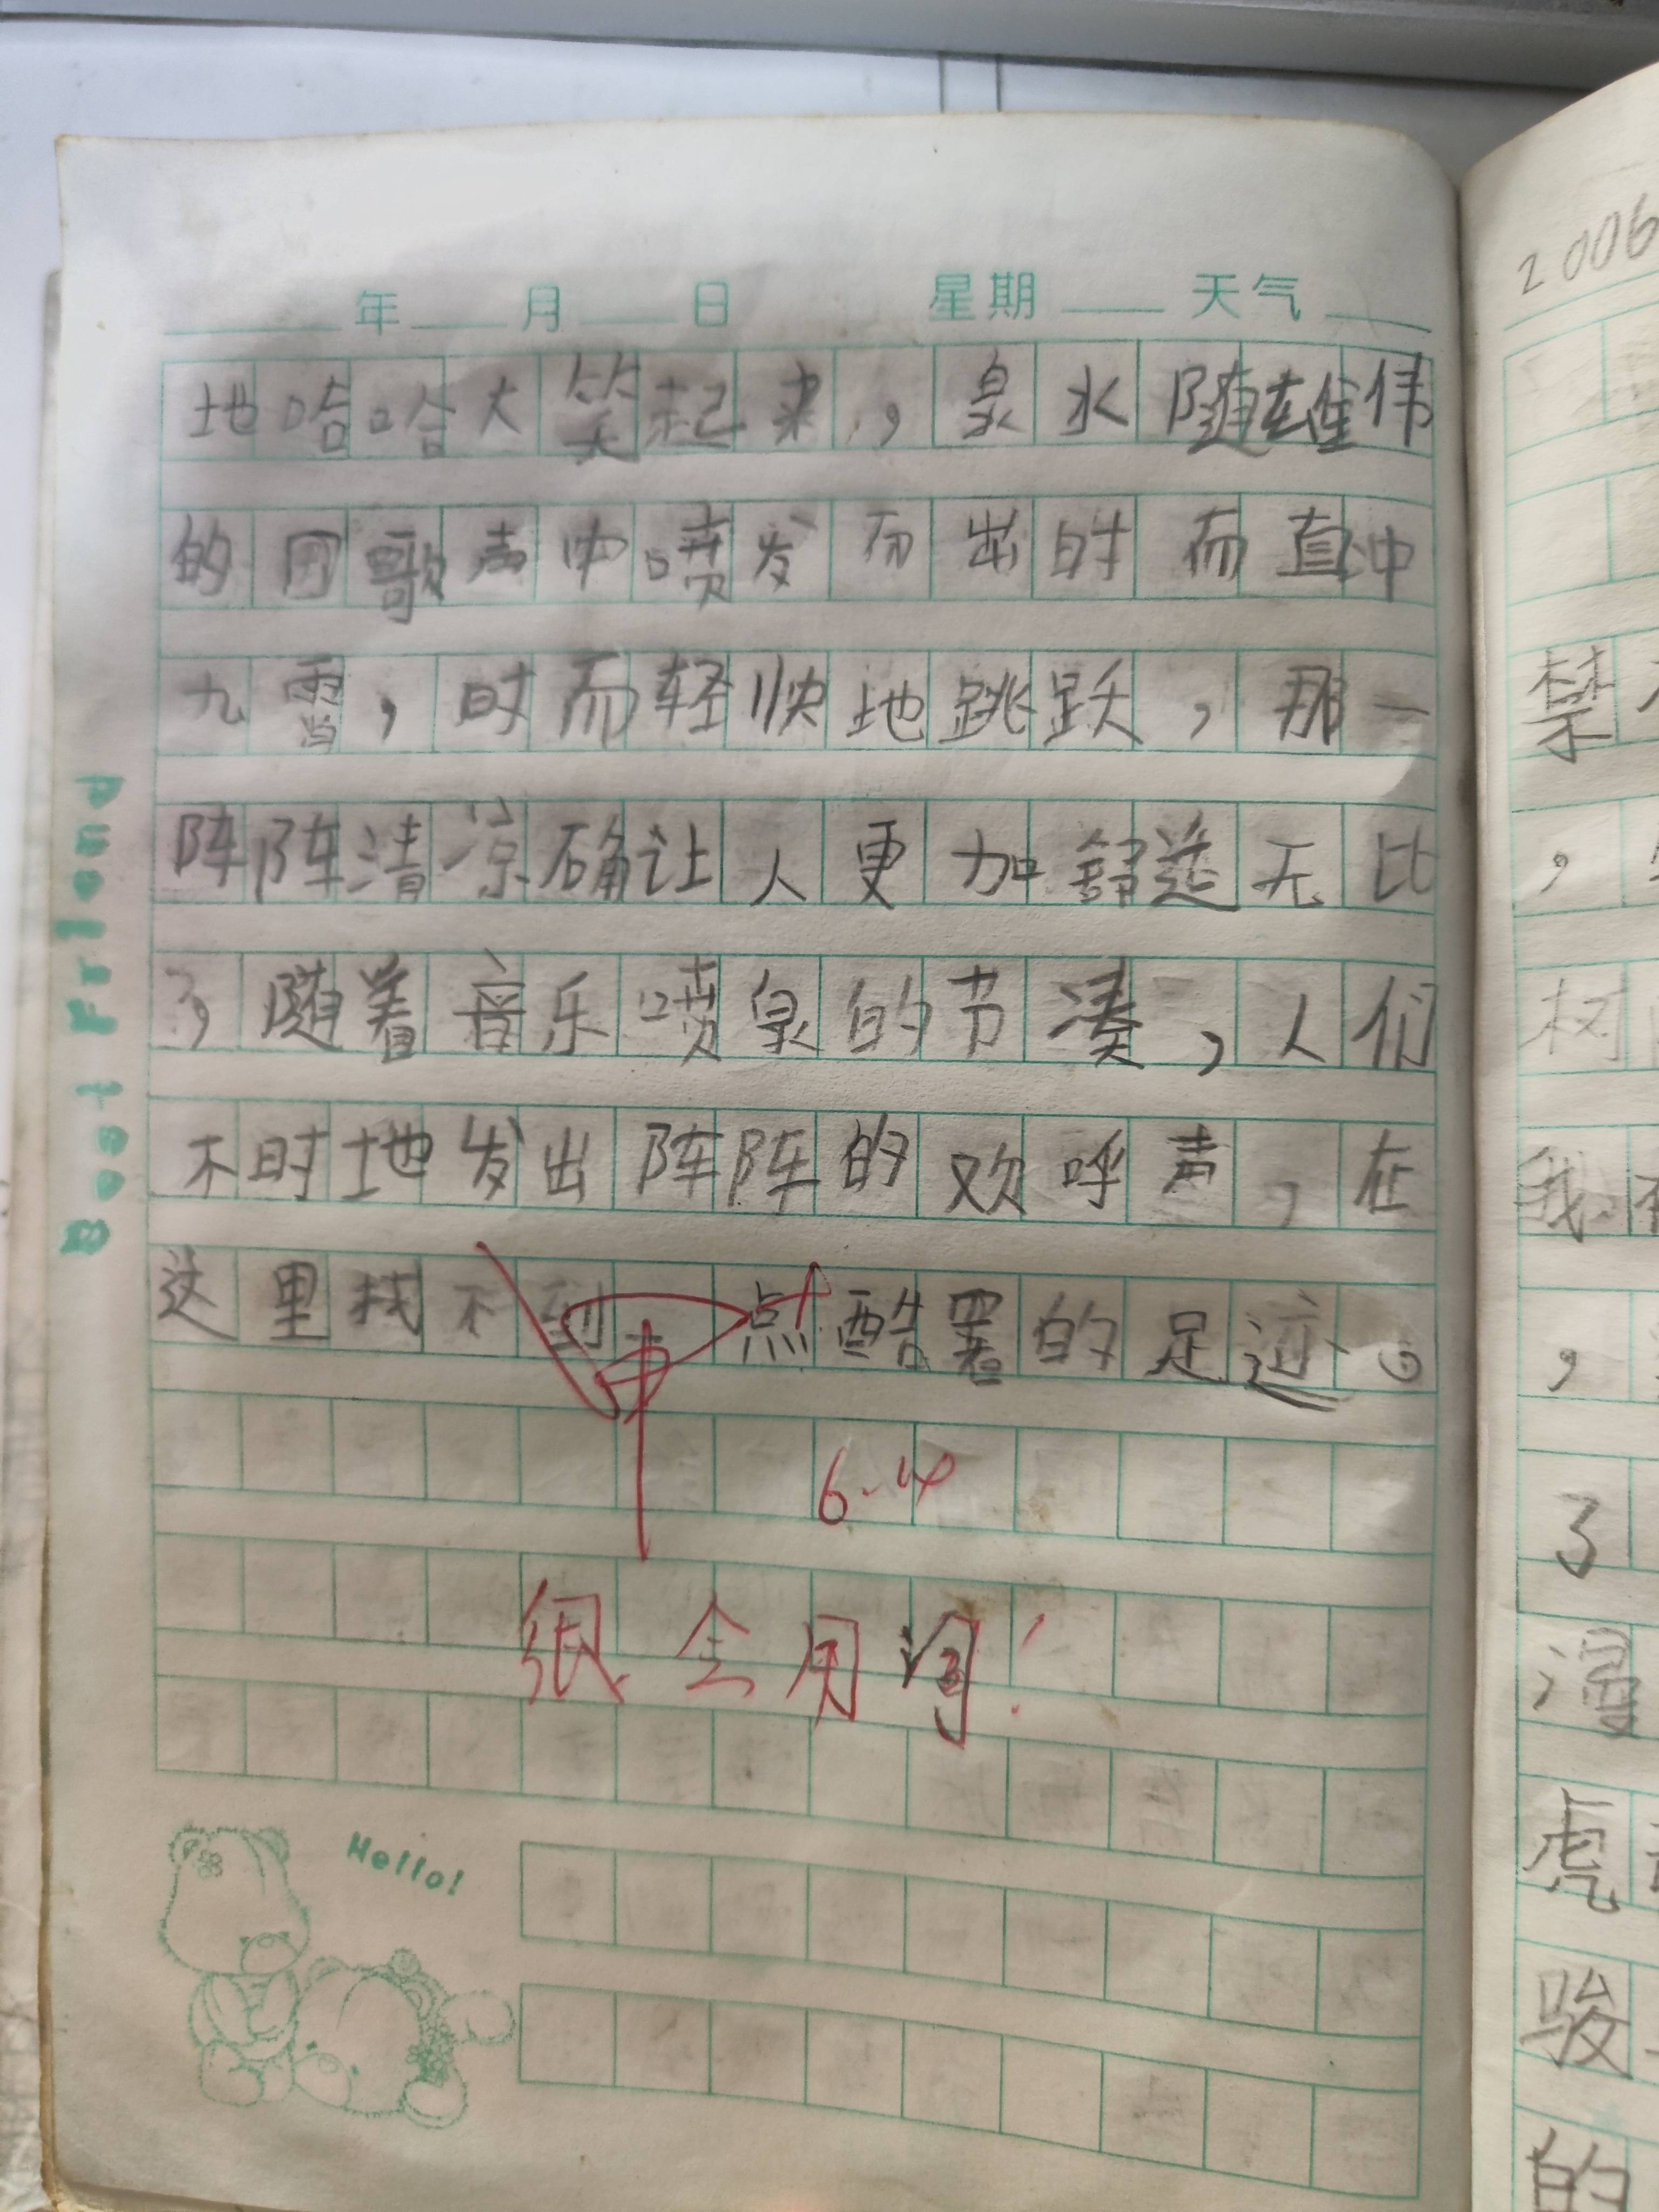 年 月 日 星期 天气
地哈哈大笑起来，泉水随雄伟
的国歌声中喷发而出时而直冲
九霄，时而轻快地跳跃，那一
阵阵清凉确让人更加舒适无比
了，随着音乐喷泉的节凑，人们
不时地发出阵阵的欢呼声，在
这里找不到一点酷署的足迹。
6.14
很会用词！
Hello!
Best Friend
2006
禁
，
树
我
，
了
漫
虎
骏
的